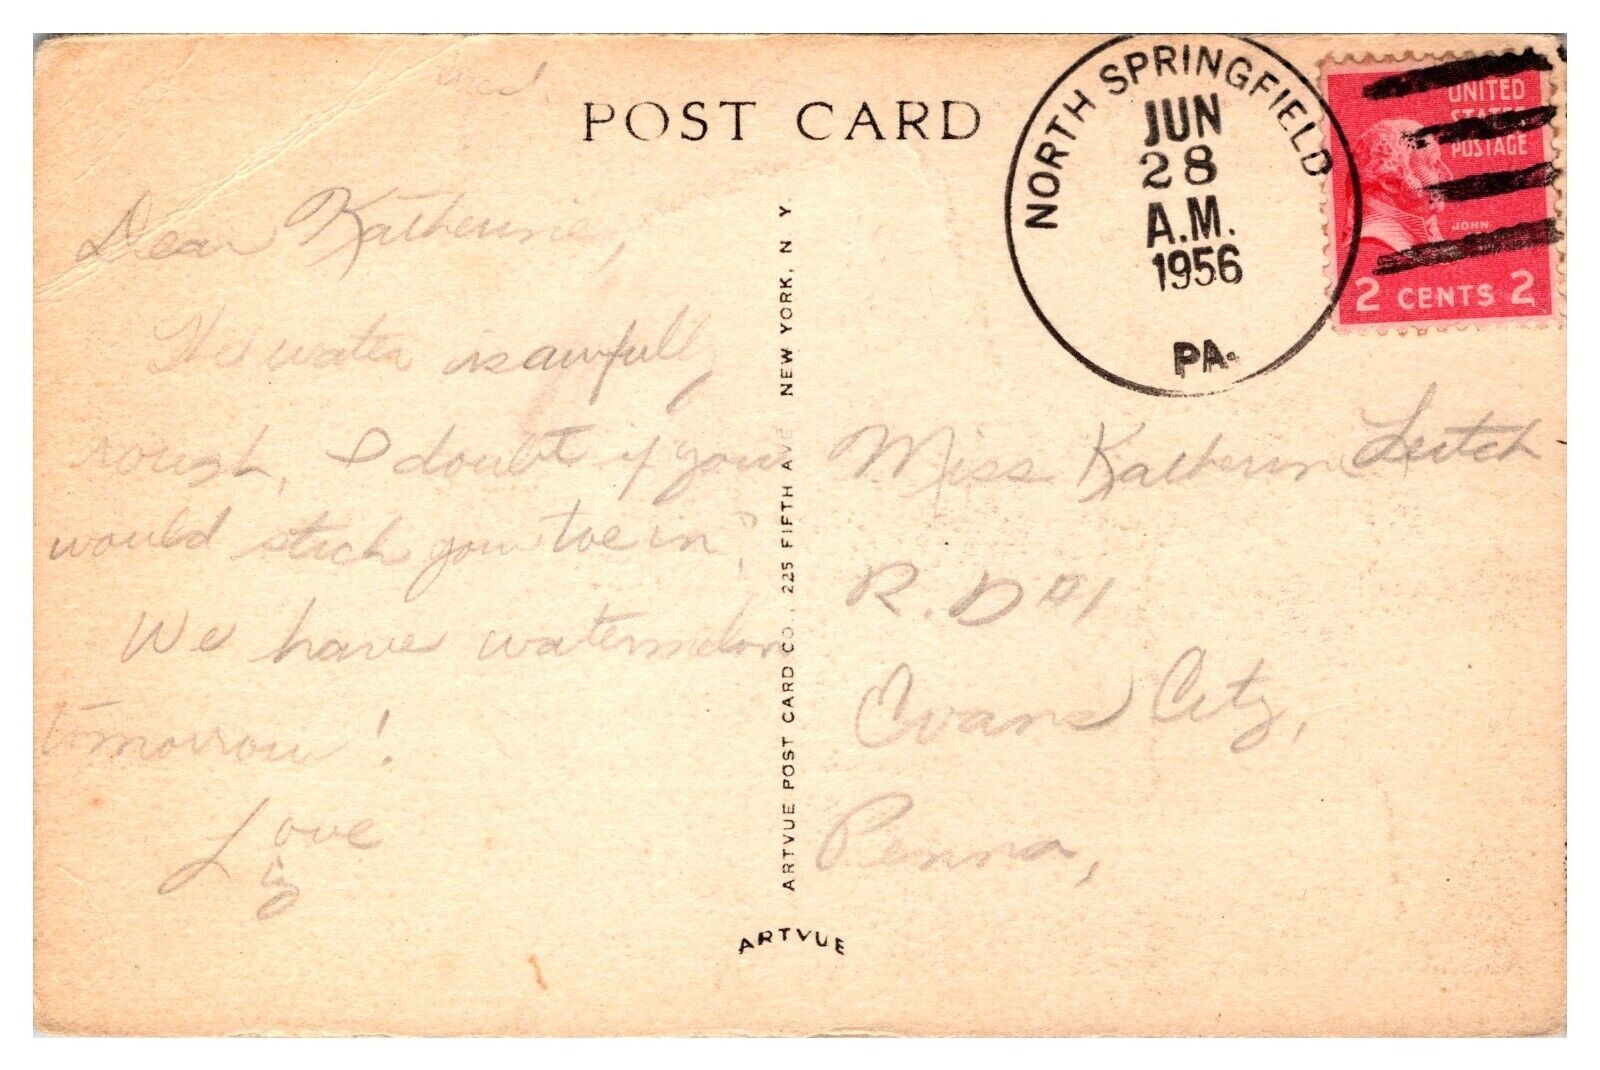 POST CARD
NORTH SPRINGFIELD
JUN
28
A.M.
1956
PA.
UNITED
STATES
POSTAGE
JOHN
2 CENTS 2
Dear Katherine,
The water is awfully
rough, I doubt if you
would stick your toe in?
We have watermelon
tomorrow!
Love
Miss Katherine Leitch
R. D #1
Evans City,
Penna,
ARTVUE POST CARD CO., 225 FIFTH AVE NEW YORK, N. Y.
ARTVUE